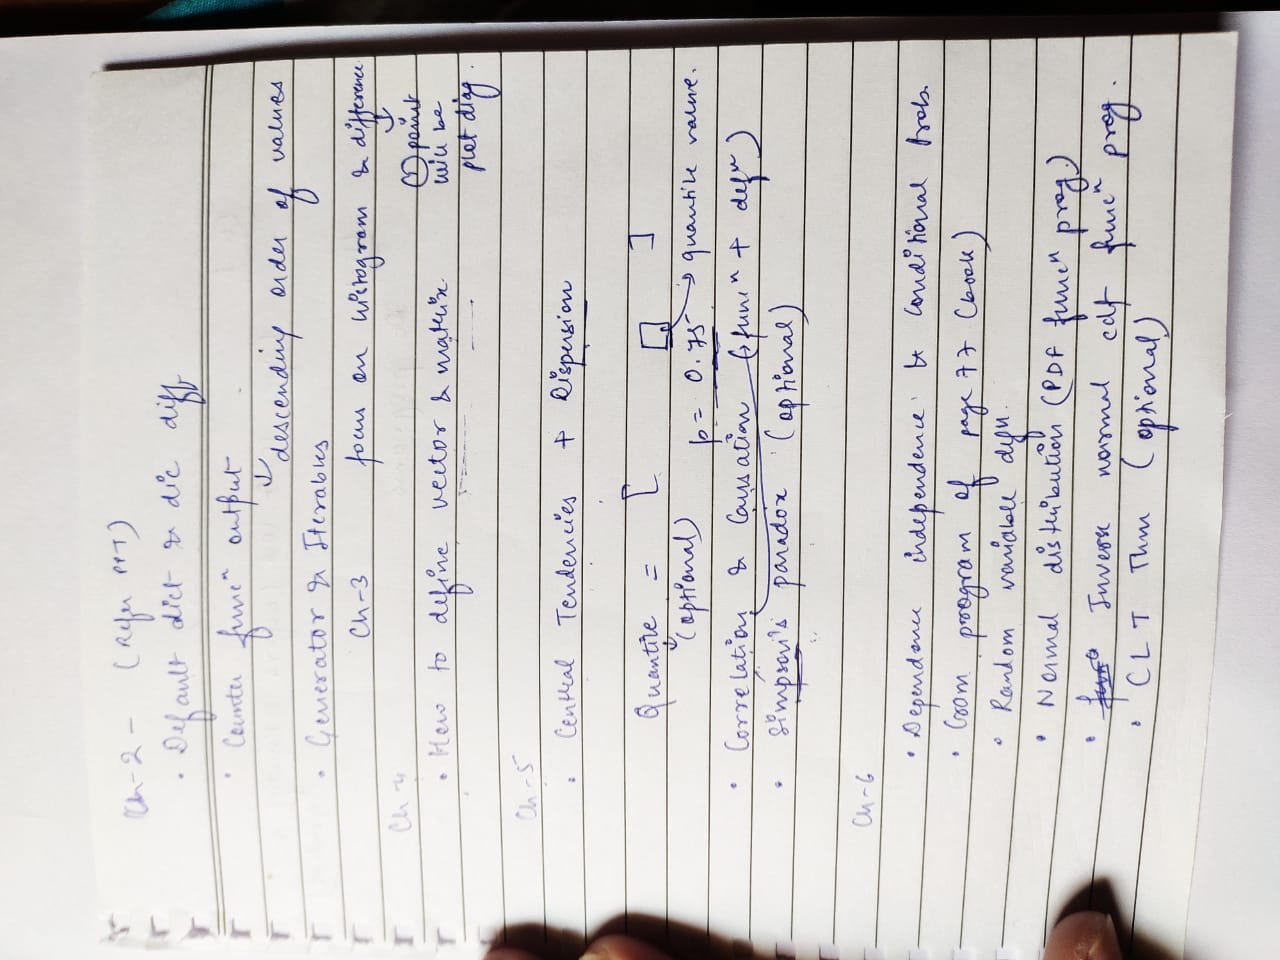 Ch-2 - (Refer PPT)
• Default dict & dic diff
• Counter funcⁿ output
↳ descending order of values
• Generator & Iterables
Ch-3 focus on histogram & difference
Ch-4
① point
will be
plot diag.
• How to define vector & matrix.
Ch-5
• Central Tendencies + Dispersion
Quantile = [ □ ]
(optional) p = 0.75 → quantile value.
• Correlation & Causation (funcⁿ + defⁿ)
• Simpson's paradox (optional)
Ch-6
• Dependence independence & Conditional Prob.
• program of page 77 (book)
• Random variable defn.
• Normal distribution (PDF funcⁿ prog.)
• Inverse normal cdf funcⁿ prog.
• CLT Thm (optional)